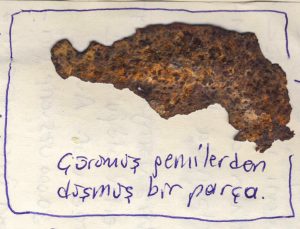 Çürümüş gemilerden
düşmüş bir parça.